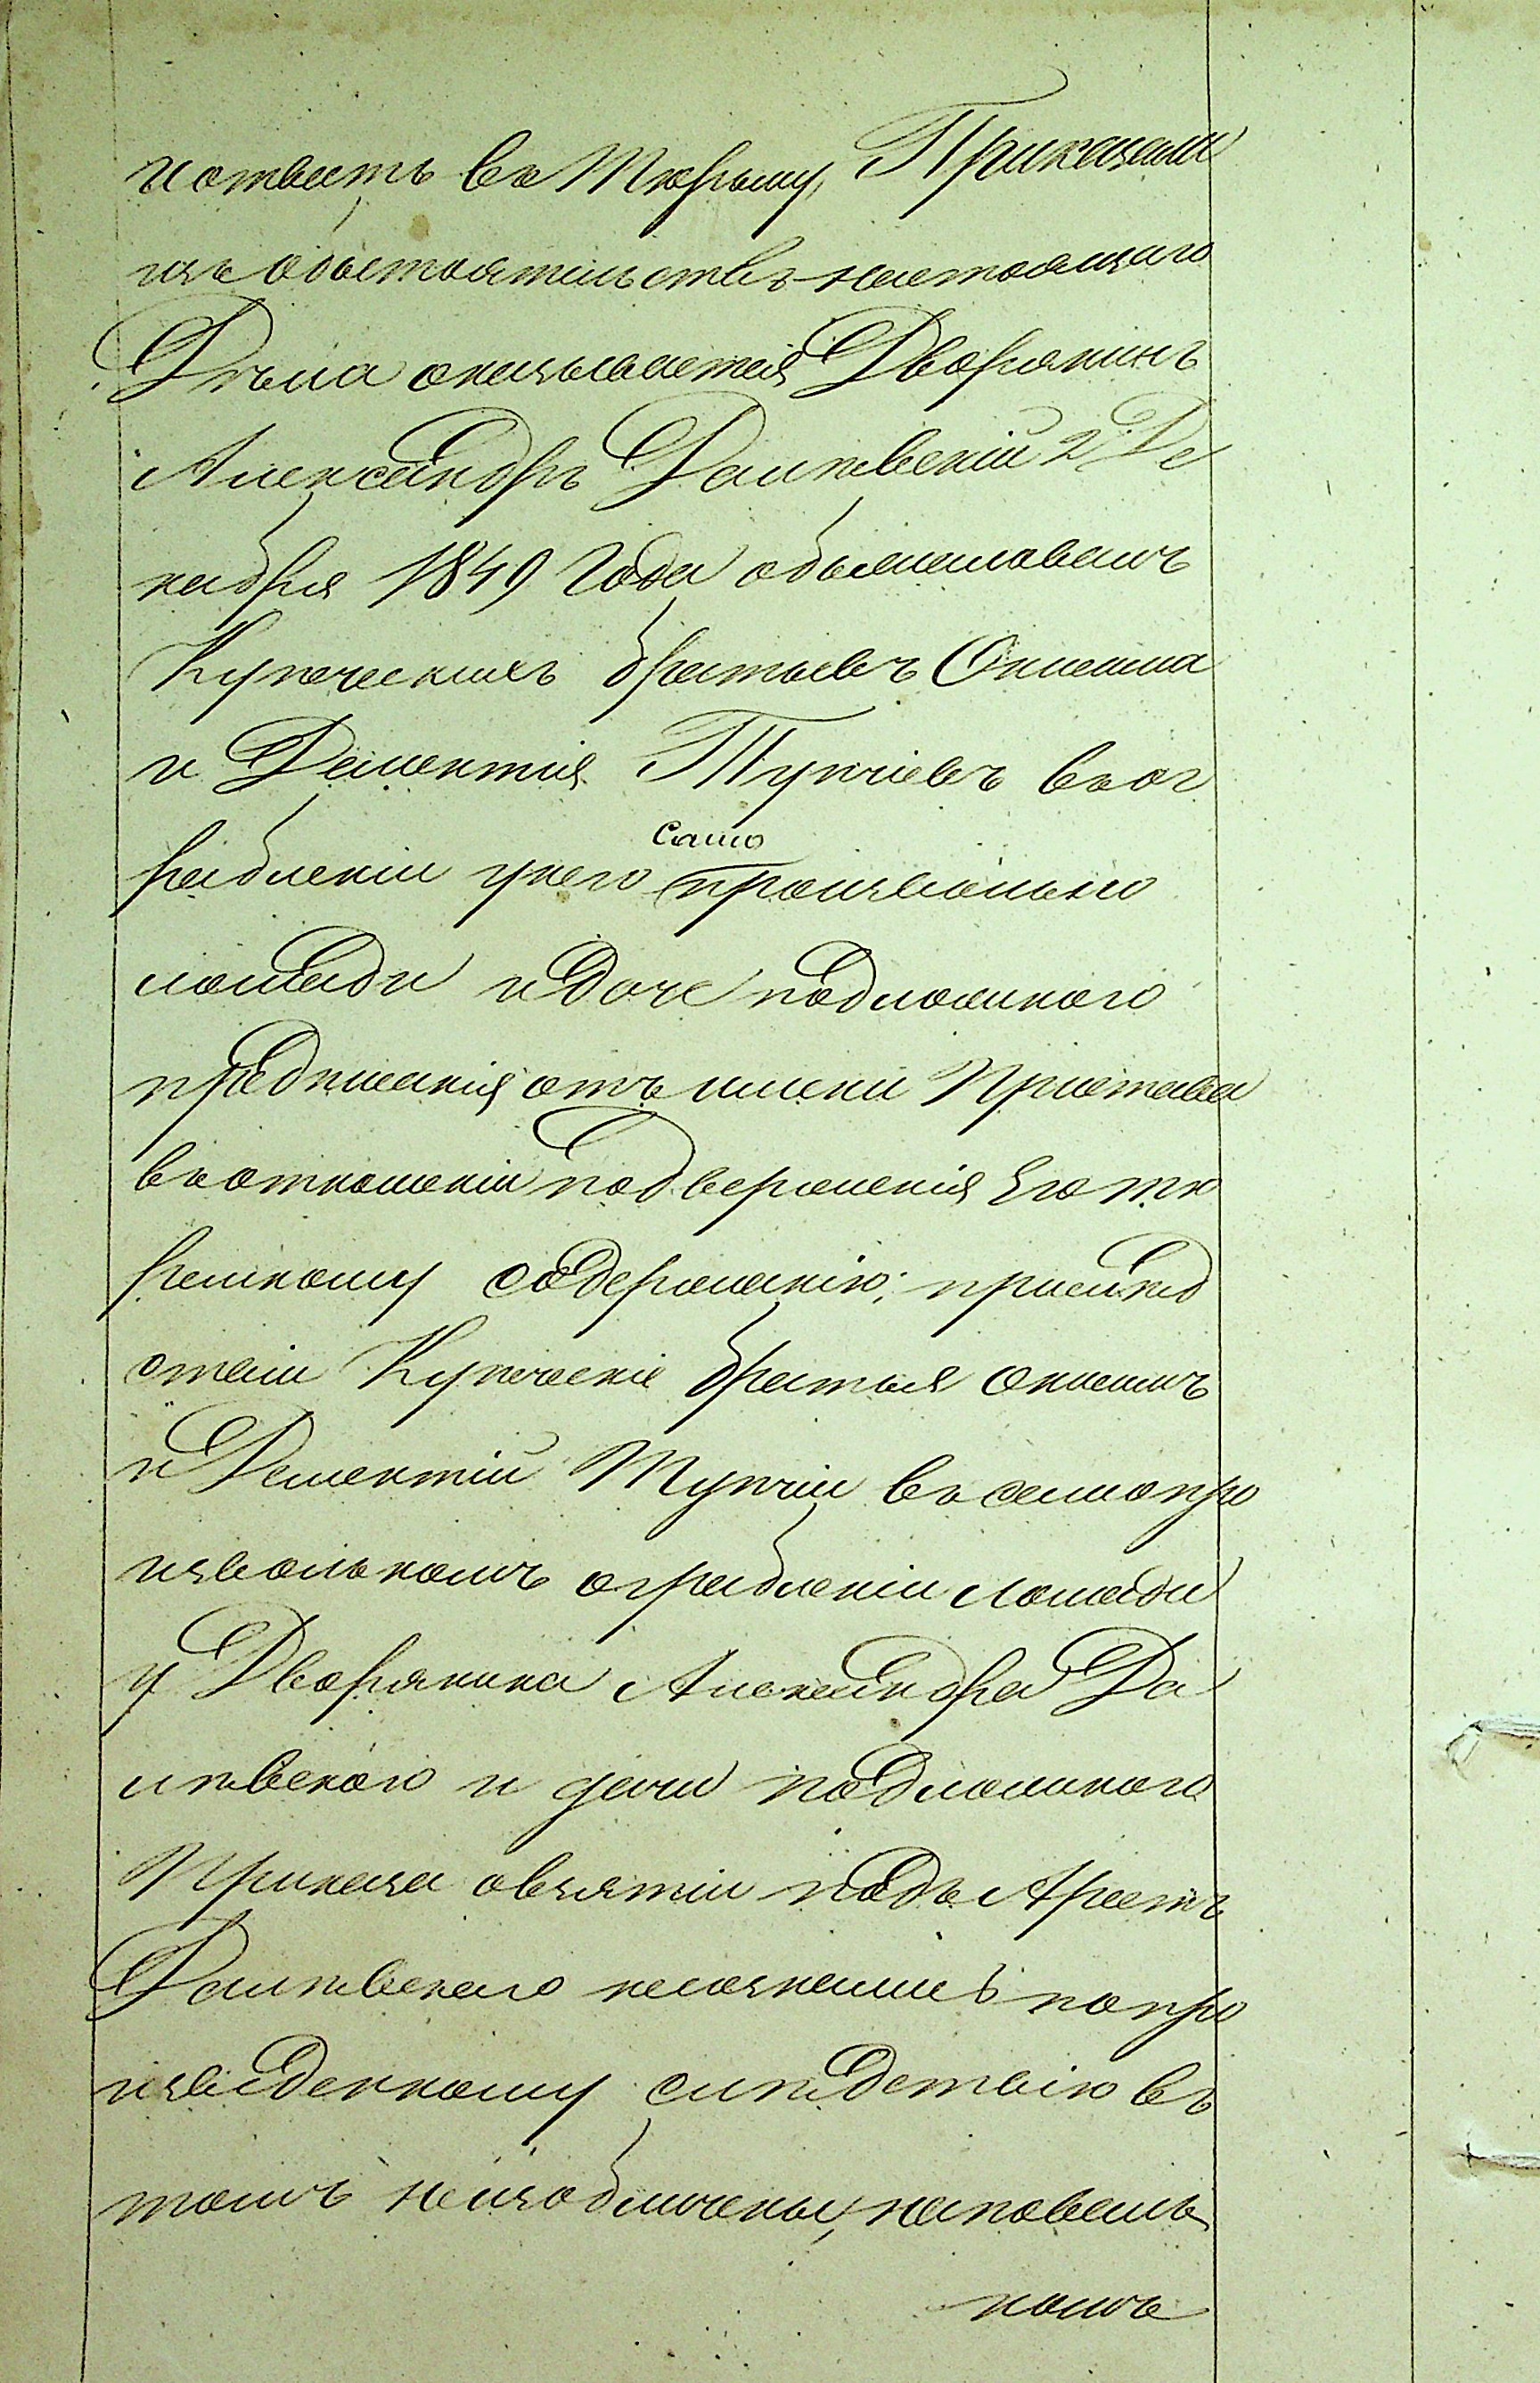 и отвесть въ Тюрьму, Приказали
изъ обстоятельствъ настоящаго
Дѣла оказывается Дворянинъ
Александръ Далѣвскій 2 Де
кабря 1849 года обжаловалъ
Купеческихъ братьевъ Онисима
и Дементія Тупчіевъ въ ог
рабленіи у него само произвольно
лошади и даче подложного
предписанія отъ имени Пристава
въ отношеніи подверженія Его тю
ремному содержанію; при слѣд
ствіи Купеческіе братья Онисимъ
и Дементій Тупчіи въ самопро
извольномъ ограбленіи лошади
у Дворянина Александра Да
лѣвского и дачи подложного
Приказа о взятіи подъ Арестъ
Далѣвскаго несознались по про
изведенному слѣдствію въ
томъ неизобличены, на поваль
номъ